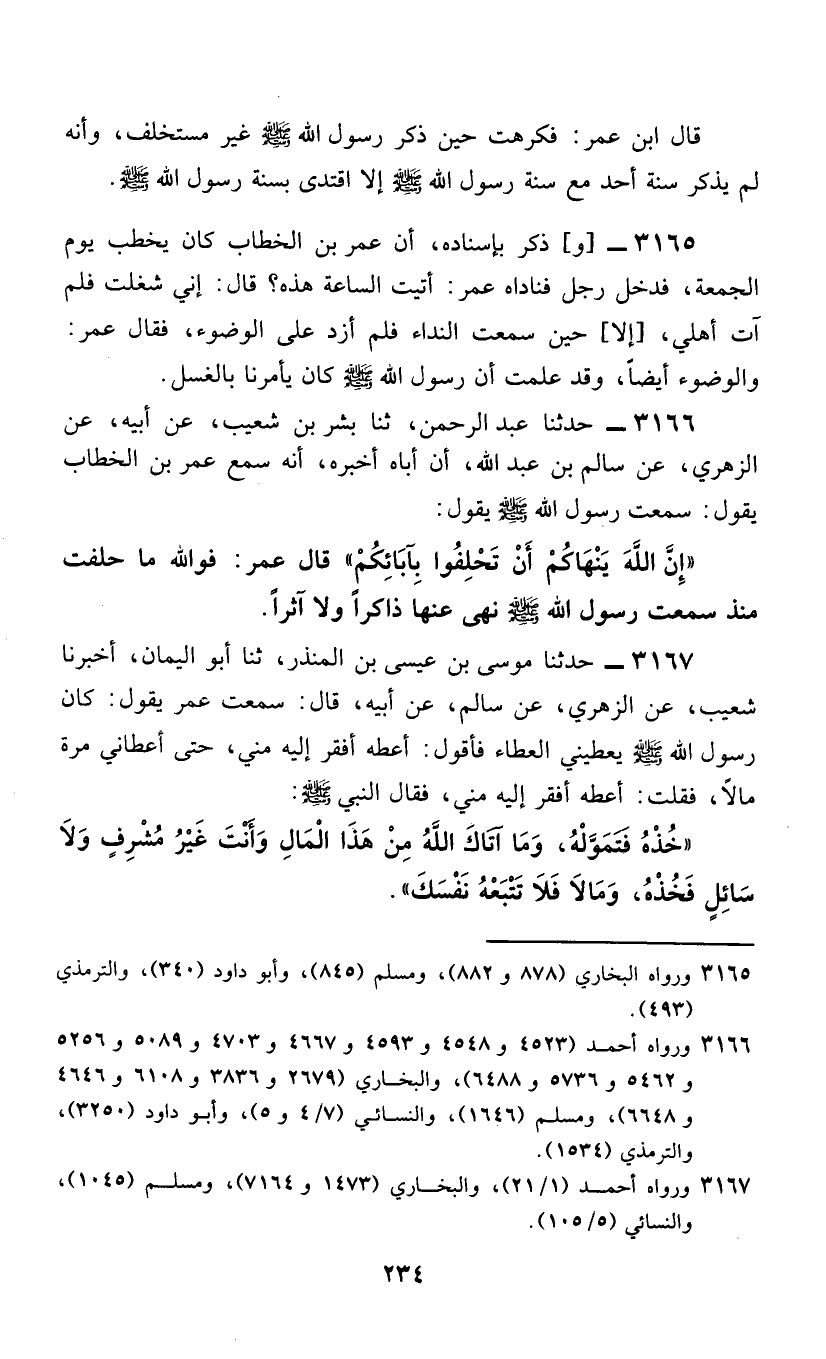 قال ابن عمر: فكرهت حين ذكر رسول الله ﷺ غير مستخلف، وأنه
لم يذكر سنة أحد مع سنة رسول الله ﷺ إلا اقتدى بسنة رسول الله ﷺ.
٣١٦٥ ـ [و] ذكر بإسناده، أن عمر بن الخطاب كان يخطب يوم
الجمعة، فدخل رجل فناداه عمر: أتيت الساعة هذه؟ قال: إني شغلت فلم
آت أهلي، [إلا] حين سمعت النداء فلم أزد على الوضوء، فقال عمر:
والوضوء أيضاً، وقد علمت أن رسول الله ﷺ كان يأمرنا بالغسل.
٣١٦٦ ـ حدثنا عبد الرحمن، ثنا بشر بن شعيب، عن أبيه، عن
الزهري، عن سالم بن عبد الله، أن أباه أخبره، أنه سمع عمر بن الخطاب
يقول: سمعت رسول الله ﷺ يقول:
«إِنَّ اللَّهَ يَنْهَاكُمْ أَنْ تَحْلِفُوا بِآبَائِكُمْ» قال عمر: فوالله ما حلفت
منذ سمعت رسول الله ﷺ نهى عنها ذاكراً ولا آثراً.
٣١٦٧ ـ حدثنا موسى بن عيسى بن المنذر، ثنا أبو اليمان، أخبرنا
شعيب، عن الزهري، عن سالم، عن أبيه، قال: سمعت عمر يقول: كان
رسول الله ﷺ يعطيني العطاء فأقول: أعطه أفقر إليه مني، حتى أعطاني مرة
مالاً، فقلت: أعطه أفقر إليه مني، فقال النبي ﷺ:
«خُذْهُ فَتَمَوَّلْهُ، وَمَا آتَاكَ اللَّهُ مِنْ هَذَا الْمَالِ وَأَنْتَ غَيْرُ مُشْرِفٍ وَلَا
سَائِلٍ فَخُذْهُ، وَمَالَا فَلَا تَتْبَعْهُ نَفْسَكَ».
٣١٦٥ ورواه البخاري (٨٧٨ و ٨٨٢)، ومسلم (٨٤٥)، وأبو داود (٣٤٠)، والترمذي
(٤٩٣).
٣١٦٦ ورواه أحمد (٤٥٢٣ و ٤٥٤٨ و ٤٥٩٣ و ٤٦٦٧ و ٤٧٠٣ و ٥٠٨٩ و ٥٢٥٦
و ٥٤٦٢ و ٥٧٣٦ و ٦٤٨٨)، والبخاري (٢٦٧٩ و ٣٨٣٦ و ٦١٠٨ و ٦٦٤٦
و ٦٦٤٨)، ومسلم (١٦٤٦)، والنسائي (٤/٧ و ٥)، وأبو داود (٣٢٥٠)،
والترمذي (١٥٣٤).
٣١٦٧ ورواه أحمد (٢١/١)، والبخاري (١٤٧٣ و ٧١٦٤)، ومسلم (١٠٤٥)،
والنسائي (١٠٥/٥).
٢٣٤